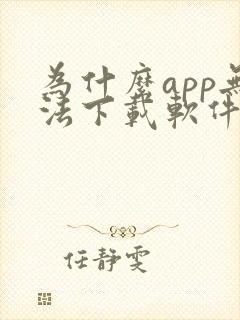 為什麼app無
法下載軟件
任靜雯